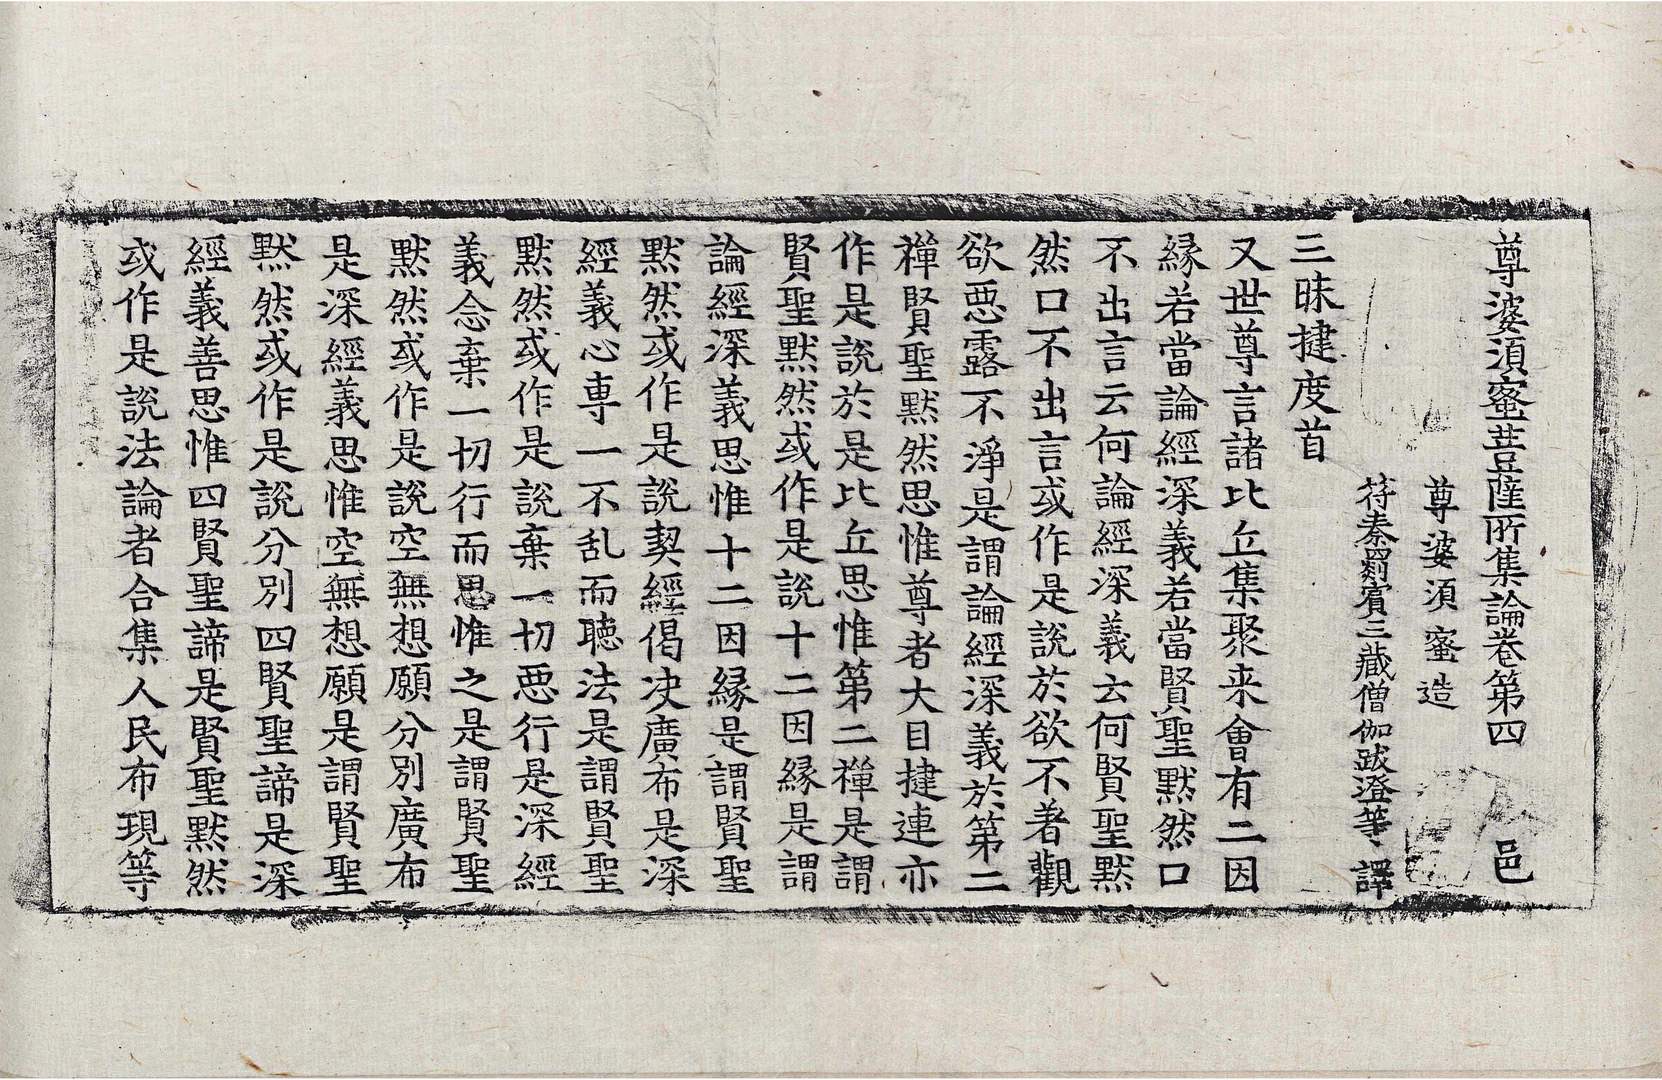 尊婆須蜜菩薩所集論卷第四　邑
尊婆須蜜造
苻秦罽賓三藏僧伽跋澄等譯
三昧揵度首
又世尊言諸比丘集聚来會有二因
縁若當論經深義若當賢聖黙然口
不出言云何論經深義云何賢聖黙
然口不出言或作是說於欲不著觀
欲惡露不淨是謂論經深義於第二
禪賢聖黙然思惟尊者大目揵連亦
作是說於是比丘思惟第二禪是謂
賢聖黙然或作是說十二因縁是謂
論經深義思惟十二因縁是謂賢聖
黙然或作是說契經偈决廣布是深
經義心専一不乱而聴法是謂賢聖
黙然或作是說棄一切惡行是深經
義念棄一切行而思惟之是謂賢聖
黙然或作是說空無想願分別廣布
是深經義思惟空無想願是謂賢聖
黙然或作是說分別四賢聖諦是深
經義善思惟四賢聖諦是賢聖黙然
或作是說法論者合集人民布現等